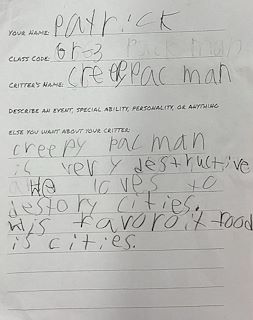 YOUR NAME: Patrick
CLASS CODE: Gr-3 pack man
CRITTER'S NAME: creepPac man
DESCRIBE AN EVENT, SPECIAL ABILITY, PERSONALITY, OR ANYTHING
ELSE YOU WANT ABOUT YOUR CRITTER:
creepy pac man
is very destructive
He loves to
destory cities.
His favoroit food
is cities.